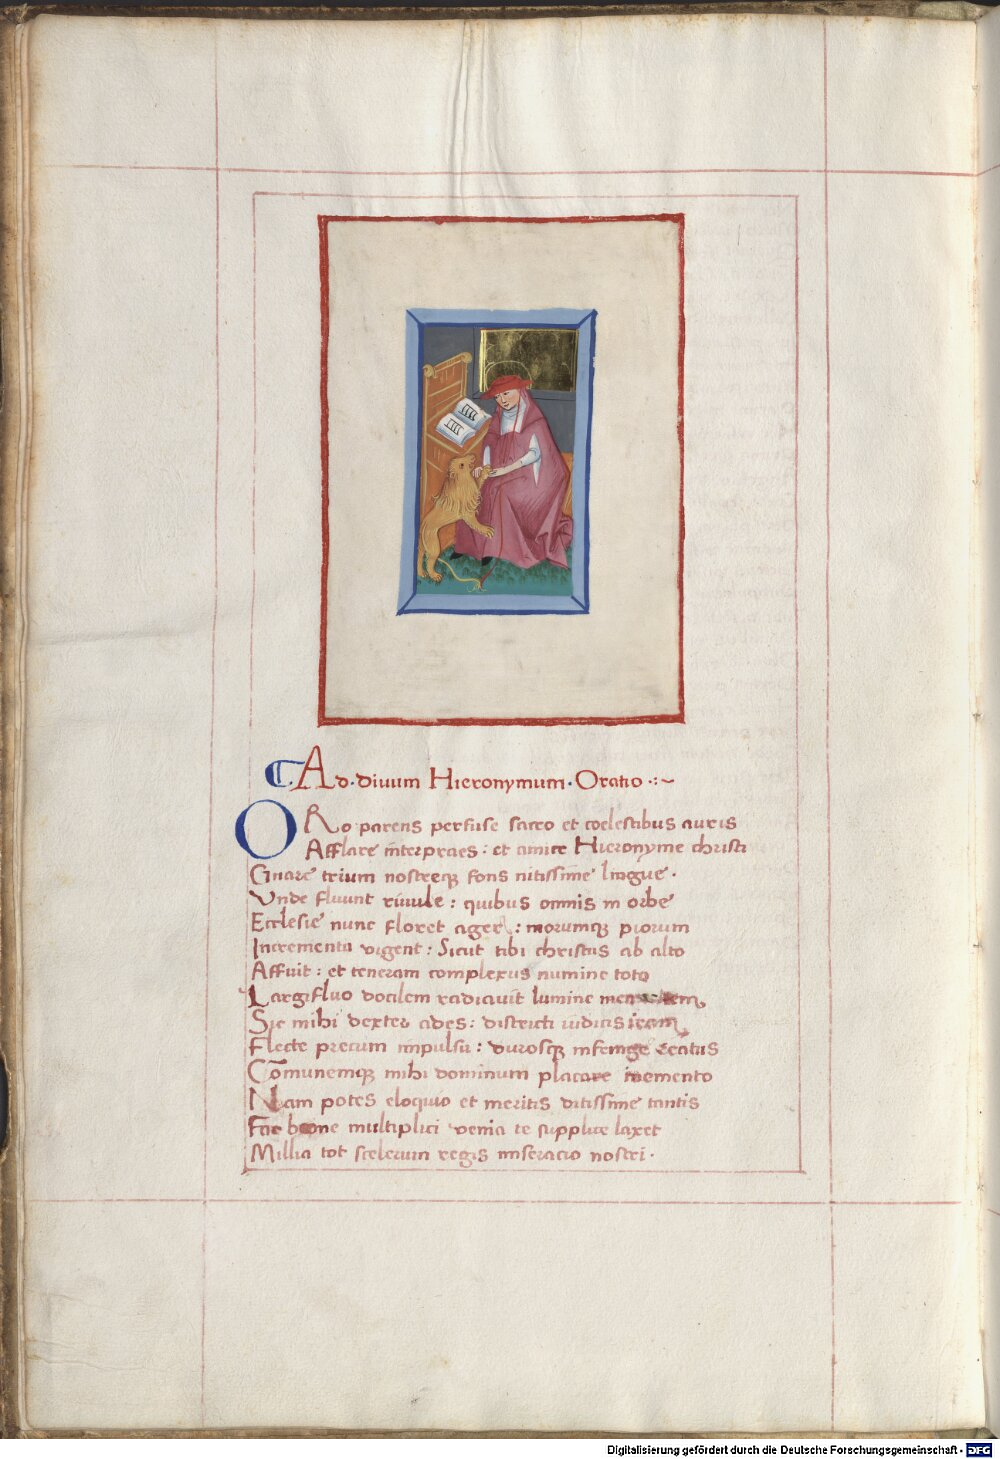 Ad · divum Hieronymum · Oratio · : ~
ORo parens perfuse sacro et coelestibus auris
Afflate interpraes : et amice Hieronyme christi
Gnare trium nostreq3 fons nitissime lingue ·
Vnde fluunt rivule : quibus omnis in orbe
Ecclesie nunc floret ager : morumq3 piorum
Incrementa vigent : Sicut tibi christus ab alto
Affuit : et teneram complexus numine toto
Largifluo docilem radiavit lumine
Sic mihi dexter ades : districti iudicis iram
Flecte precum impulsu : durosq3 reatus
Cōmunemq3 mihi dominum placare memento
Nam potes eloquio et meritis ditissime tantis
Fac bone multiplici venia te supplice laxet
Millia tot scelerum regis miseracio nostri ·
Digitalisierung gefördert durch die Deutsche Forschungsgemeinschaft - DFG